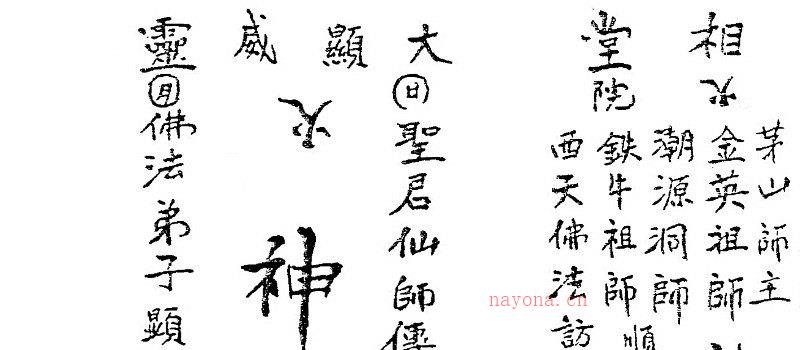 茅山師主
相火金英祖師
潮源洞師順
鉄牛祖師
堂院
西天佛法訪
大顯威靈
日聖君仙師傳
火
神
月佛法弟子顯
nayona.cn